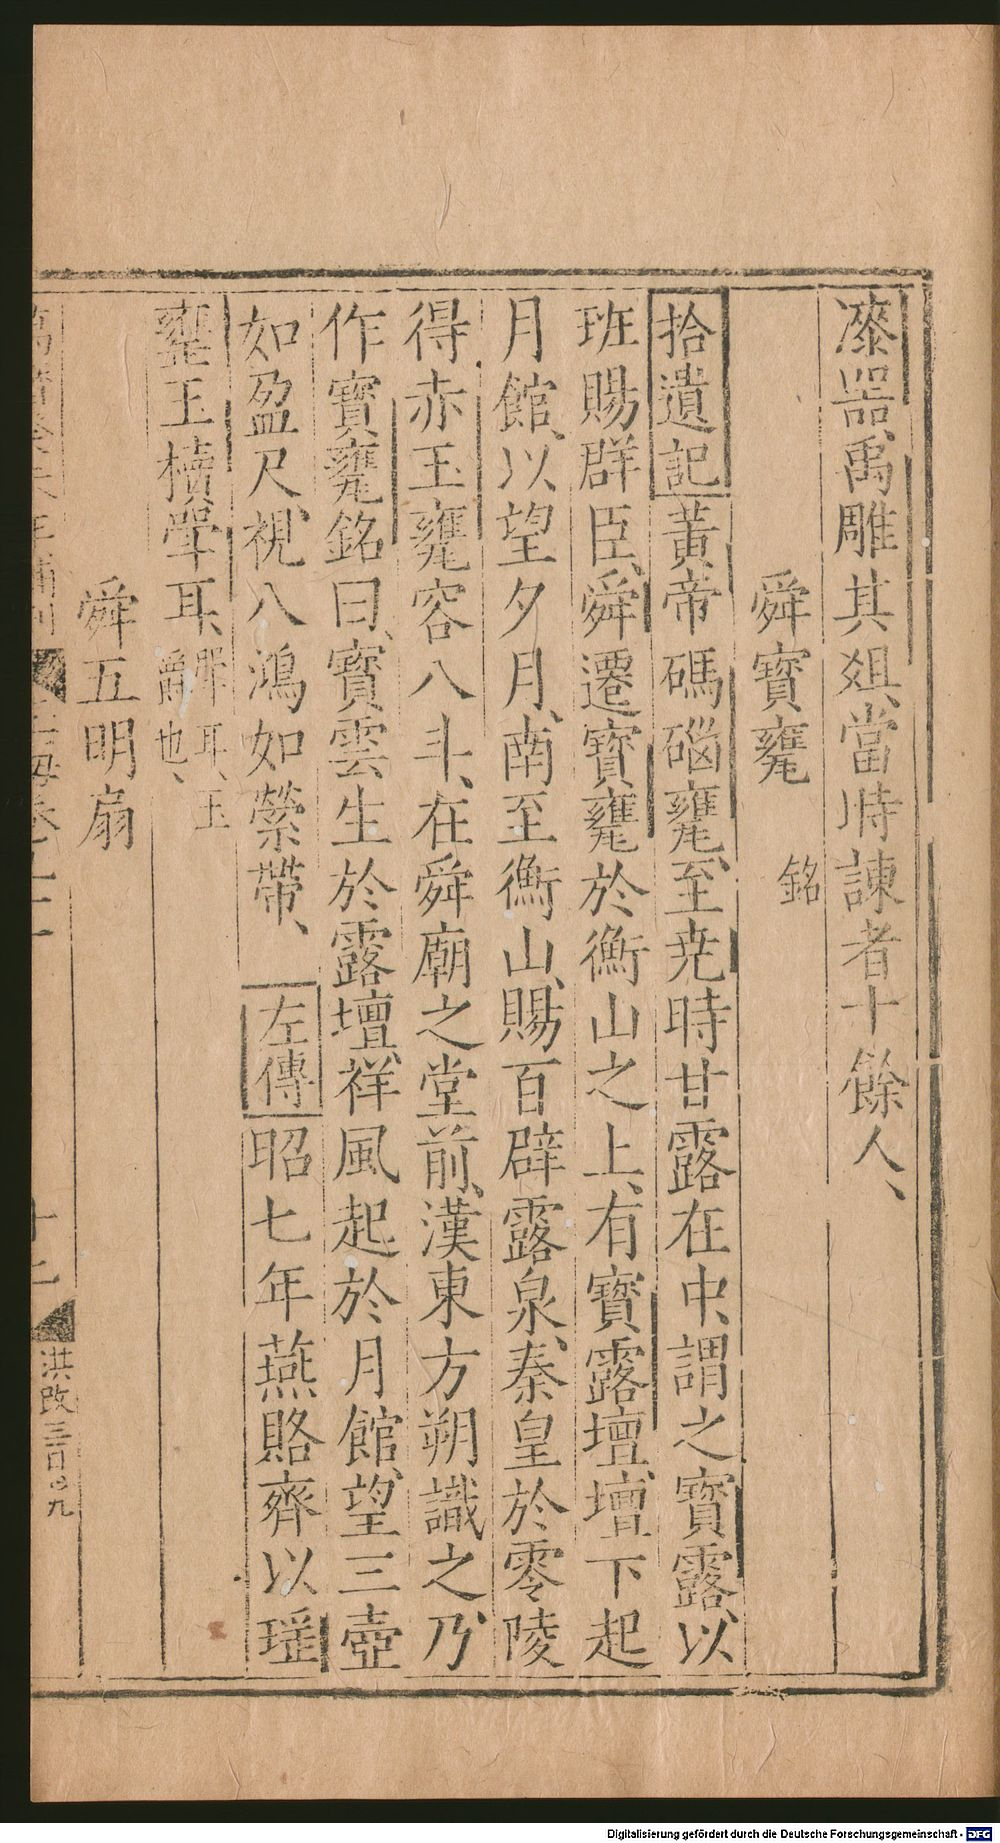 漆器、禹雕其爼、當時諫者十餘人、
舜寶甕 銘
拾遺記黃帝碼碯甕、至尭時甘露在中、謂之寶露、以
班賜群臣、舜遷寶甕於衡山之上、有寶露壇、壇下起
月館、以望夕月、南至衡山、賜百辟露泉、秦皇於零陵
得赤玉甕容八斗、在舜廟之堂前、漢東方朔識之、乃
作寶甕銘曰、寶雲生於露壇、祥風起於月館、望三壺
如盈尺、視八鴻如縈帶、 左傳昭七年燕賂齊以瑶
罋玉櫝斝耳、斝耳、玉
爵也、
舜五明扇
十七
洪改三百〇九
Digitalisierung gefördert durch die Deutsche Forschungsgemeinschaft - DFG